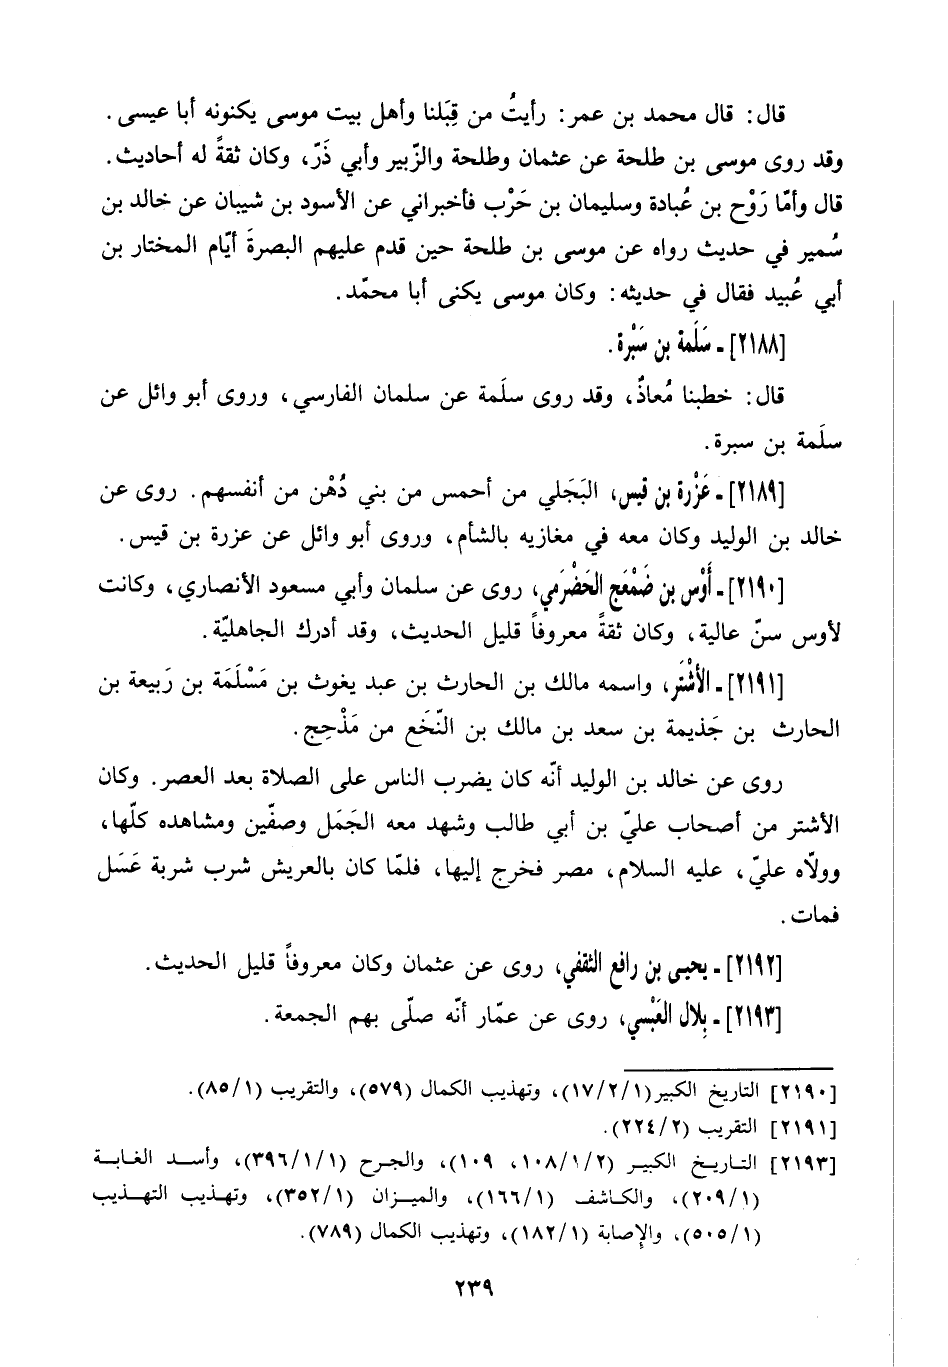 قال: قال محمد بن عمر: رأيتُ من قِبَلنا وأهل بيت موسى يكنونه أبا عيسى.
وقد روى موسى بن طلحة عن عثمان وطلحة والزّبير وأبي ذَرّ، وكان ثقةً له أحاديث.
قال وأمّا رَوْح بن عُبادة وسليمان بن حَرْب فأخبراني عن الأسود بن شيبان عن خالد بن
سُمير في حديث رواه عن موسى بن طلحة حين قدم عليهم البصرةَ أيّام المختار بن
أبي عُبيد فقال في حديثه: وكان موسى يكنى أبا محمّد.
[٢١٨٨] ـ سَلَمة بن سَبْرة.
قال: خطبنا مُعاذٌ، وقد روى سلَمة عن سلمان الفارسي، وروى أبو وائل عن
سلَمة بن سبرة.
[٢١٨٩] ـ عَزْرة بن قيس، البَجَلي من أحمس من بني دُهْن من أنفسهم. روى عن
خالد بن الوليد وكان معه في مغازيه بالشأم، وروى أبو وائل عن عزرة بن قيس.
[٢١٩٠] ـ أَوْس بن ضَمْعَج الحَضْرَمي، روى عن سلمان وأبي مسعود الأنصاري، وكانت
لأوس سنّ عالية، وكان ثقةً معروفاً قليل الحديث، وقد أدرك الجاهليّة.
[٢١٩١] ـ الأشْتَر، واسمه مالك بن الحارث بن عبد يغوث بن مَسْلَمَة بن رَبيعة بن
الحارث بن جَذيمة بن سعد بن مالك بن النَّخَع من مَذْحِج.
روى عن خالد بن الوليد أنّه كان يضرب الناس على الصلاة بعد العصر. وكان
الأشتر من أصحاب عليّ بن أبي طالب وشهد معه الجَمَل وصفّين ومشاهده كلّها،
وولّاه عليّ، عليه السلام، مصر فخرج إليها، فلمّا كان بالعريش شرب شربة عَسَل
فمات.
[٢١٩٢] ـ يحيى بن رافع الثقفي، روى عن عثمان وكان معروفاً قليل الحديث.
[٢١٩٣] ـ بِلال العَبْسي، روى عن عمّار أنّه صلّى بهم الجمعة.
[٢١٩٠] التاريخ الكبير (١٧/٢/١)، وتهذيب الكمال (٥٧٩)، والتقريب (٨٥/١).
[٢١٩١] التقريب (٢٢٤/٢).
[٢١٩٣] التاريخ الكبير (١٠٨/١/٢، ١٠٩)، والجرح (٣٩٦/١/١)، وأسد الغابة
(٢٠٩/١)، والكاشف (١٦٦/١)، والميزان (٣٥٢/١)، وتهذيب التهذيب
(٥٠٥/١)، والإصابة (١٨٢/١)، وتهذيب الكمال (٧٨٩).
٢٣٩